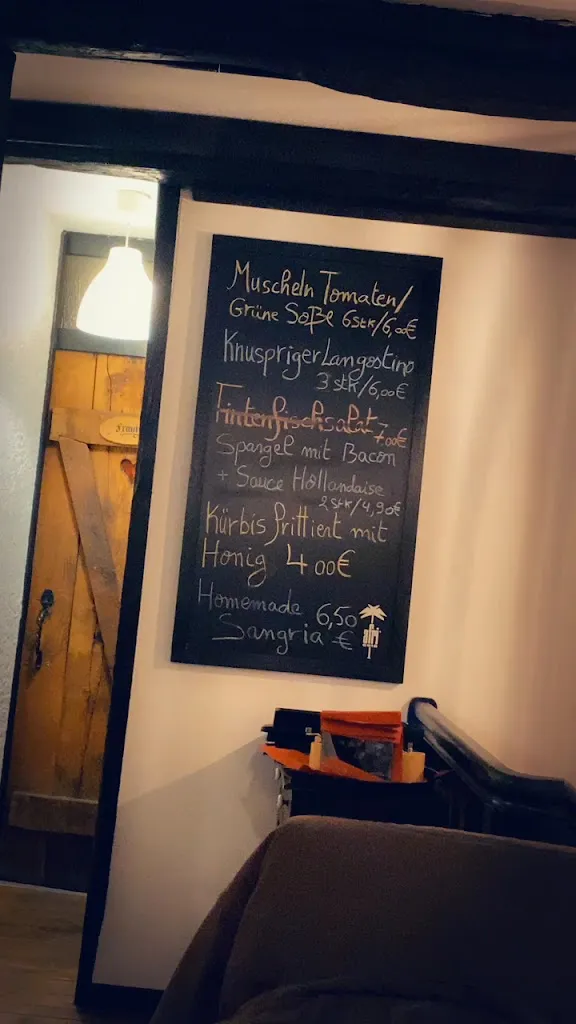 Muscheln Tomaten/
Grüne Soße 6 Stk/6,00€
Knuspriger Langostino
3 Stk/6,00€
Tintenfischsalat 7,00€
Spargel mit Bacon
+ Sauce Hollandaise
2 Stk/4,90€
Kürbis frittiert mit
Honig 4 00€
Homemade 6,50
Sangria €
afri